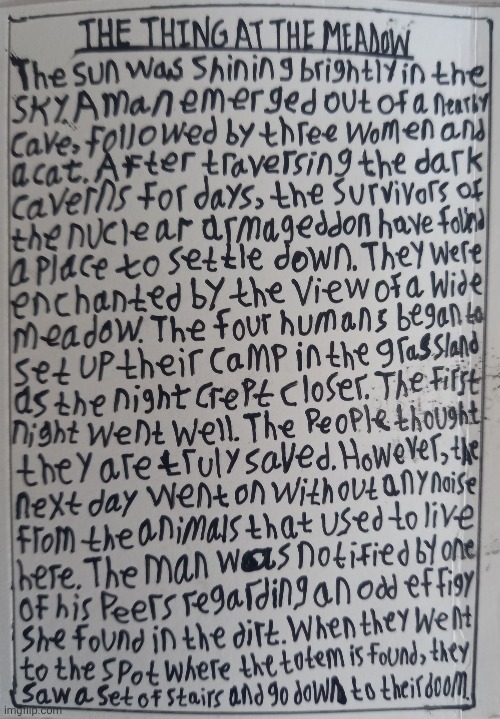 THE THING AT THE MEADOW
The sun was shining brightly in the
sky. A man emerged out of a nearby
cave, followed by three women and
a cat. After traversing the dark
caverns for days, the survivors of
the nuclear armageddon have found
a place to settle down. They were
enchanted by the view of a wide
meadow. The four humans began to
set up their camp in the grassland
as the night crept closer. The first
night went well. The people thought
they are truly saved. However, the
next day went on without any noise
from the animals that used to live
here. The man was notified by one
of his peers regarding an odd effigy
she found in the dirt. When they went
to the spot where the totem is found, they
saw a set of stairs and go down to their doom.
imgflip.com